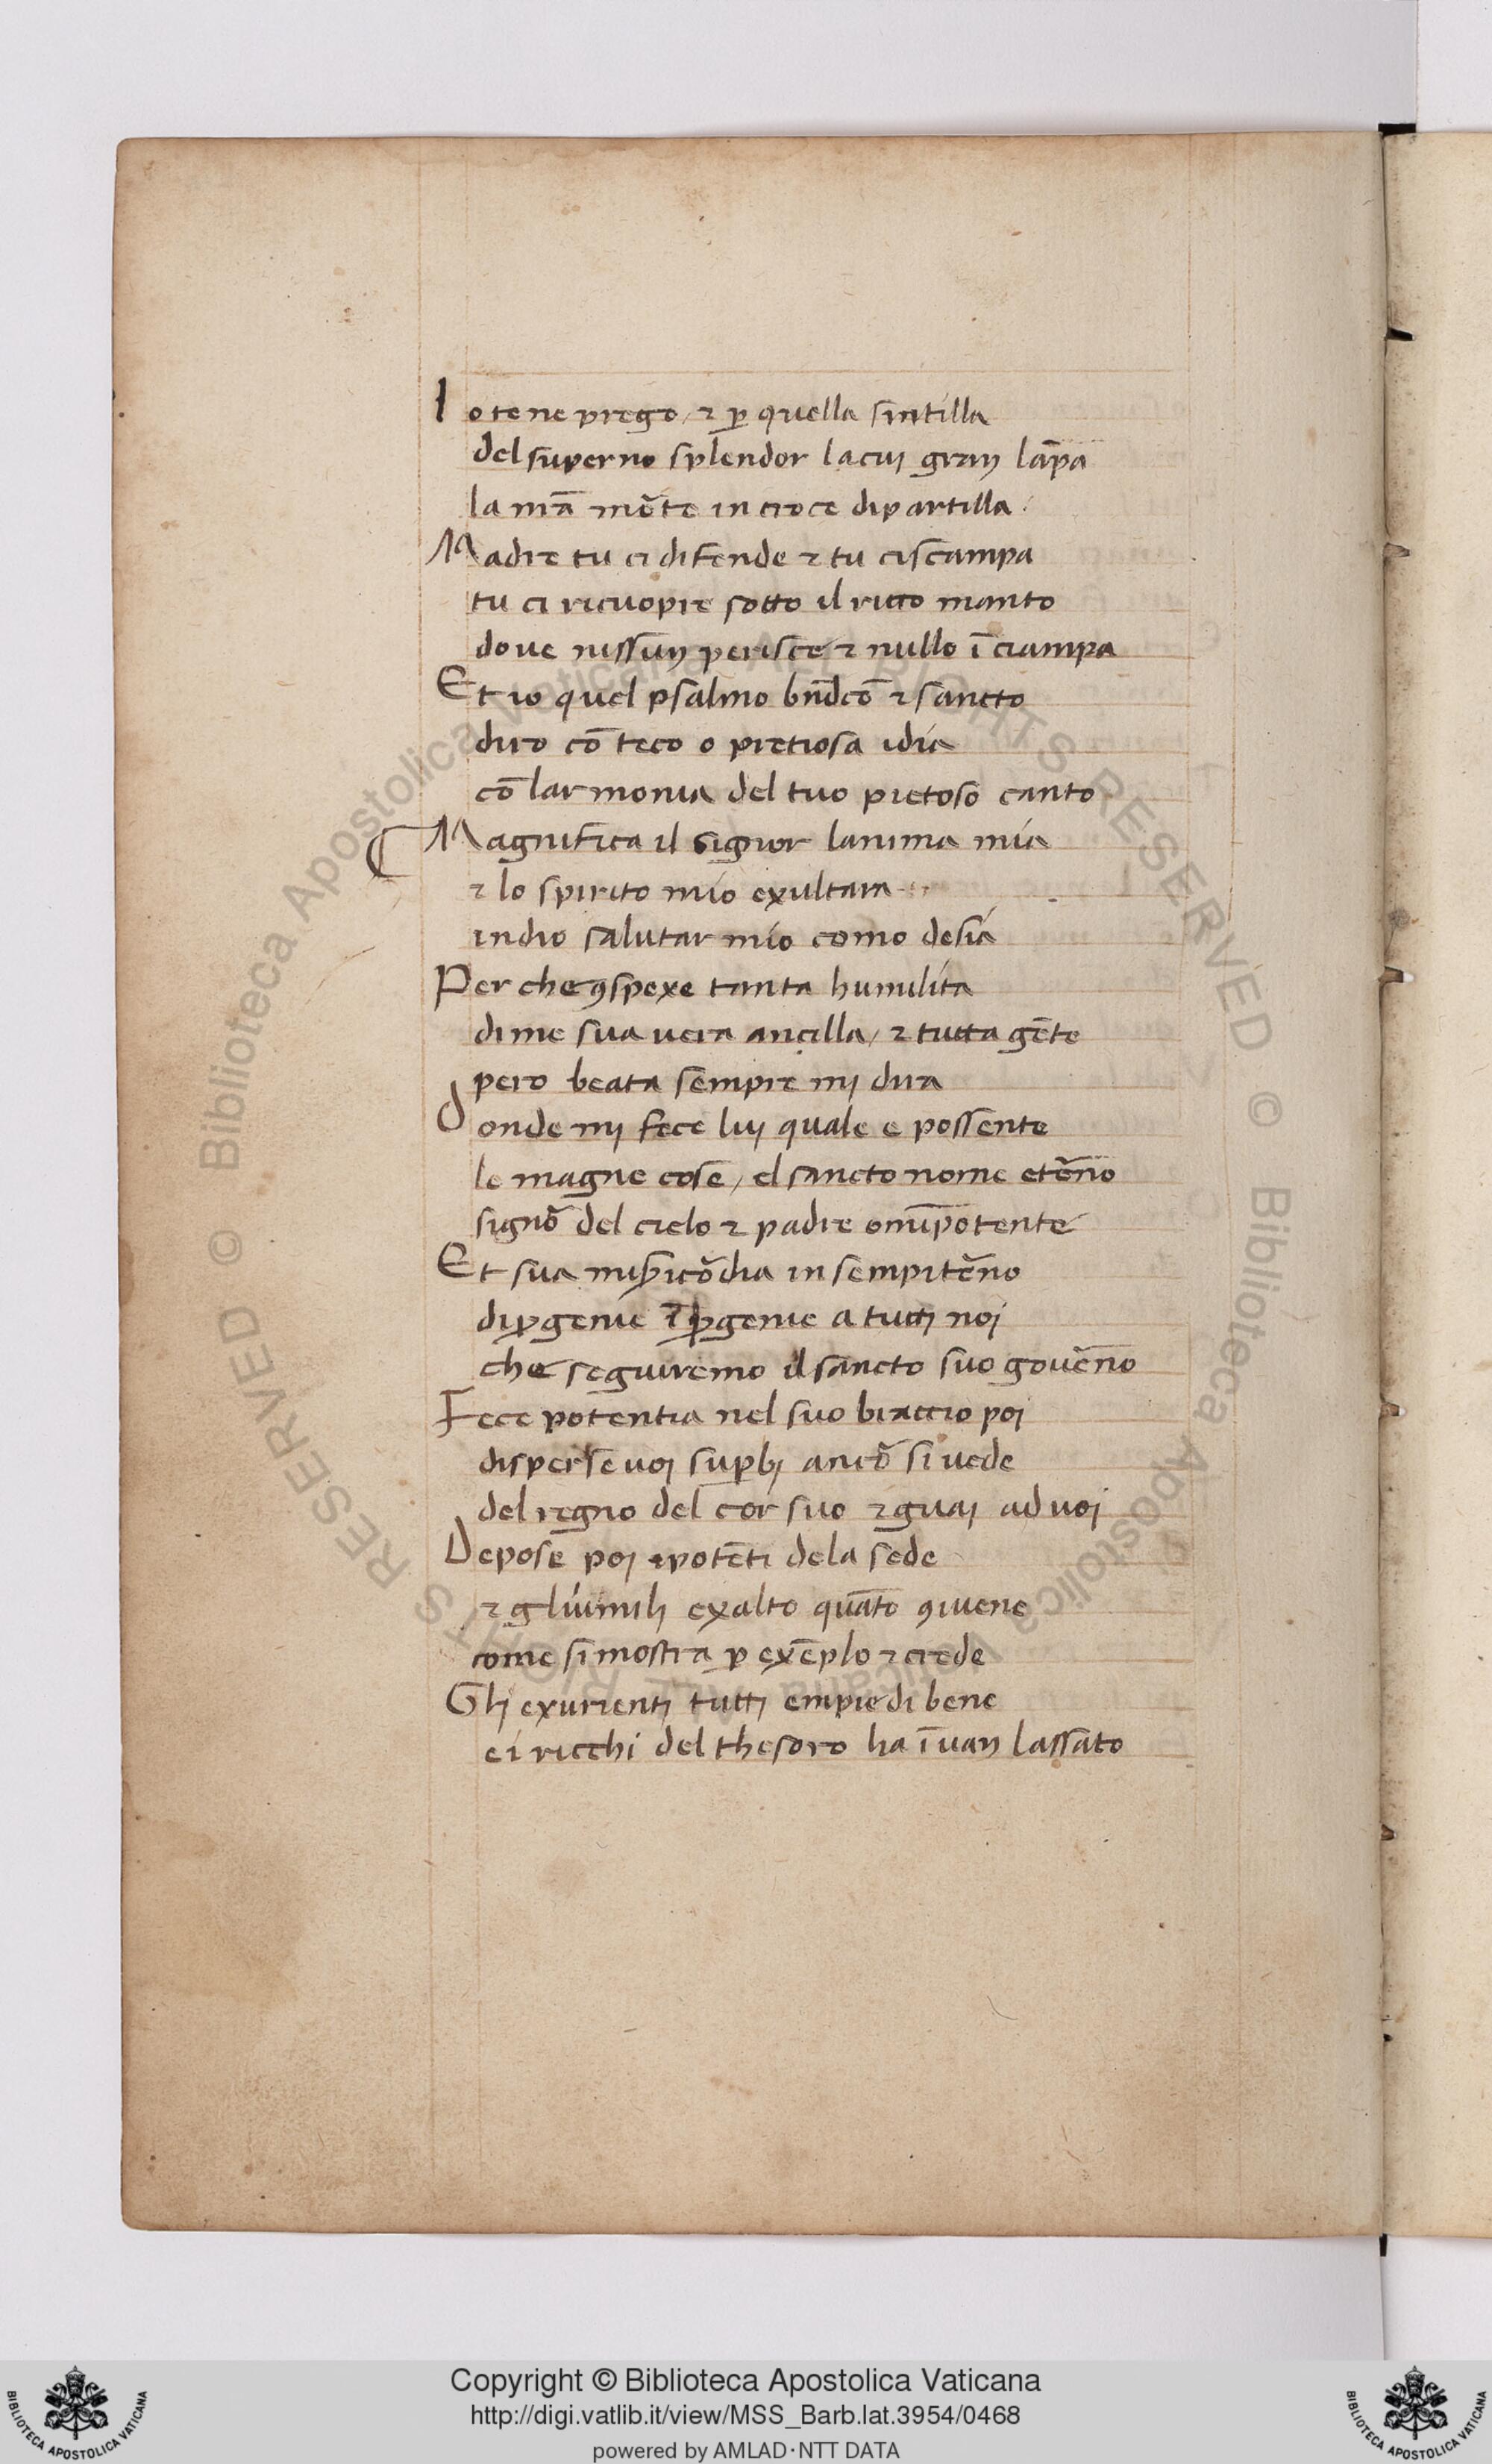 Io te ne prego / ⁊ ꝑ quella sintilla
del superno splendor la cuj gran lāpa
la mīa mō̆te in croce dipartilla.
Madre tu ci difende ⁊ tu ci scampa
tu ci ricuopre sotto il ricco manto
doue nissun perisce ⁊ nullo ī ciampa
Et io quel psalmo bn̄dc̄o ⁊ sancto
diro cō teco o pretiosa idia
cō larmonia del tuo pietoso canto
Magnifica il signor lanima mia
⁊ lo spirito mio exultara
in dio salutar mio como desia
Per che ꝯspexe tanta humilita
di me sua uera ancilla / ⁊ tutta gēte
pero beata sempre mj dira
donde mj fece luj quale e possente
le magne cose / el sancto nome etēno
signō del cielo ⁊ padre omīpotente
Et sua mis̄icōdia in sempitēno
di ꝓgenie ī ꝓgenie a tuttj noj
che seguiremo il sancto suo gouēno
Fece potentia nel suo braccio poj
disperse uoj suꝑbj ancō si uede
del regno del cor suo ⁊ guaj ad uoj
Depose poj i potētj dela sede
⁊ gliumilj exalto quāto ꝯuiene
come si mostra ꝑ exēplo ⁊ crede
Glj exurientj tuttj empie di bene
ei ricchi del thesoro ha ī uan lassato
Biblioteca Apostolica Vaticana ALL RIGHTS RESERVED ©
Copyright © Biblioteca Apostolica Vaticana
http://digi.vatlib.it/view/MSS_Barb.lat.3954/0468
powered by AMLAD·NTT DATA
BIBLIOTECA APOSTOLICA VATICANA
BIBLIOTECA APOSTOLICA VATICANA